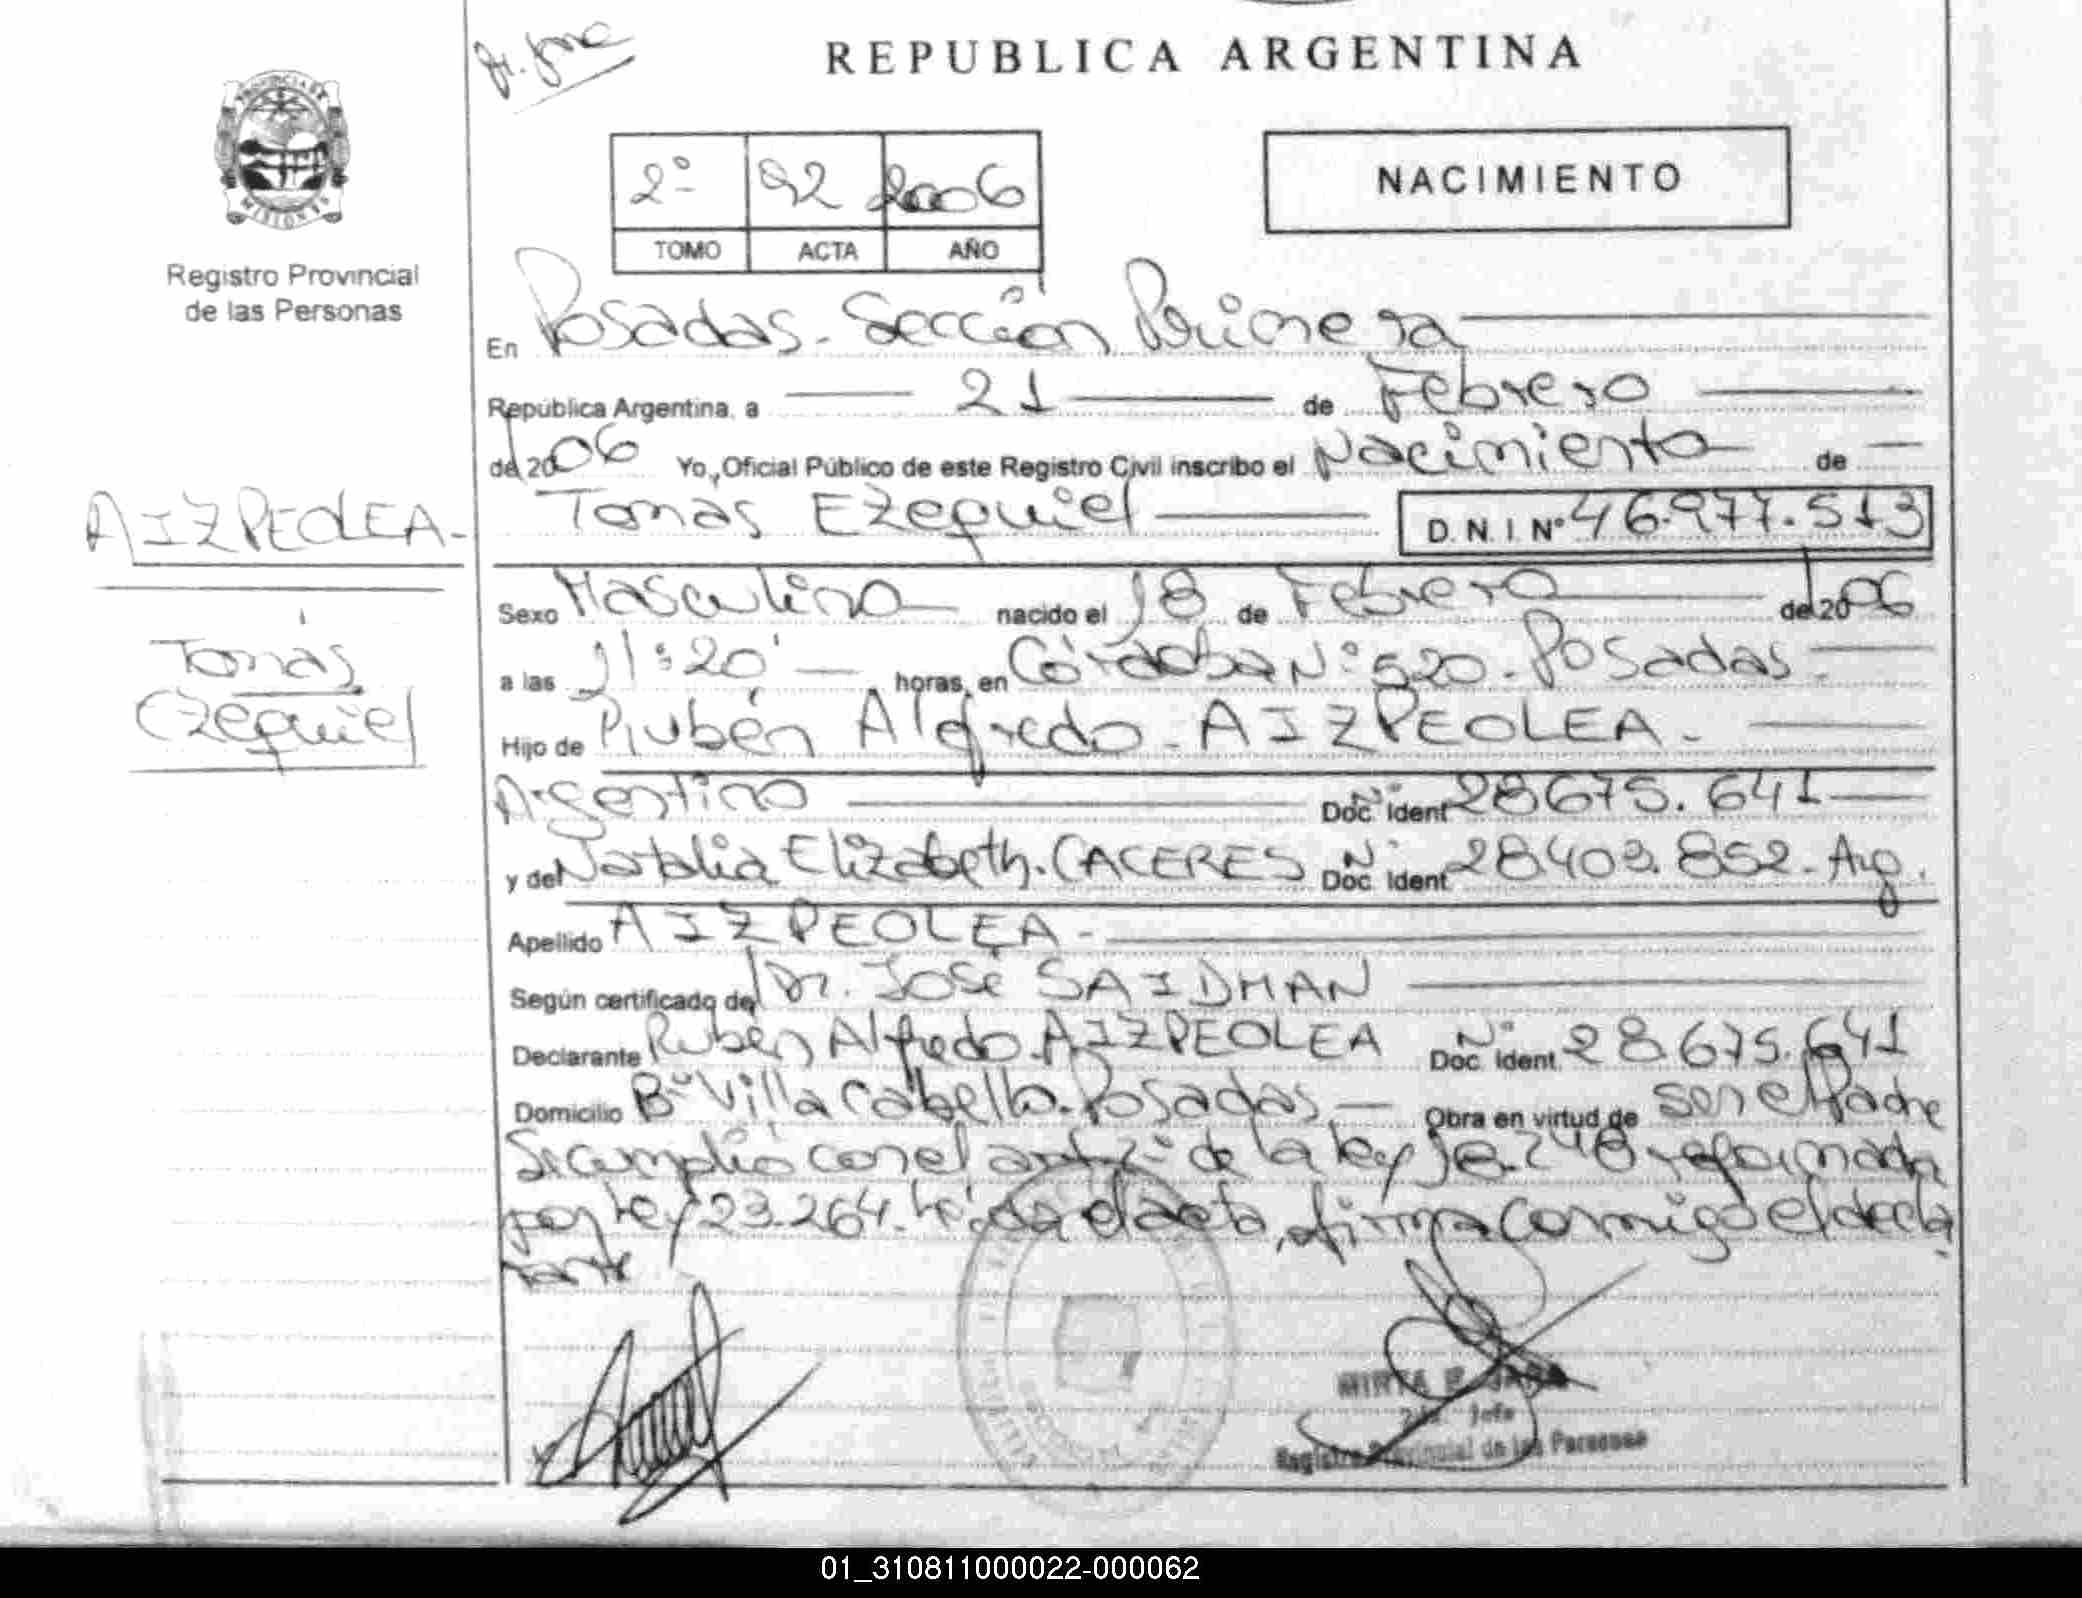 Dr. José
REPUBLICA ARGENTINA
PROVINCIA DE
MISIONES
Registro Provincial
de las Personas
2º 92 2006
TOMO ACTA AÑO
NACIMIENTO
En Posadas. Sección Primera
República Argentina, a 21 de Febrero
de 2006 Yo, Oficial Público de este Registro Civil inscribo el Nacimiento de
AIZPEOLEA.
Tomás
Ezequiel
Tomás Ezequiel D.N.I. Nº 46.977.513
Sexo Masculino nacido el 18 de Febrero de 2006
a las 11:20' horas, en Córdoba Nº 520. Posadas.
Hijo de Rubén Alfredo AIZPEOLEA.
Argentino Nº Doc. Ident 28675.641
y de Natalia Elizabeth. CACERES Nº Doc. Ident. 28403.852. Arg.
Apellido AIZPEOLEA.
Según certificado del Dr. José SAIDMAN
Declarante Rubén Alfredo AIZPEOLEA Nº Doc. Ident. 28.675.641
Domicilio Bº Villa Cabello. Posadas Obra en virtud de ser el Padre
Se cumplió con el art. 2º de la ley 18.248 reformada
por ley 23.264. Leída el acta, firma conmigo el decla
rante
MIRTA
Jefe
Registro Provincial de las Personas
01_310811000022-000062